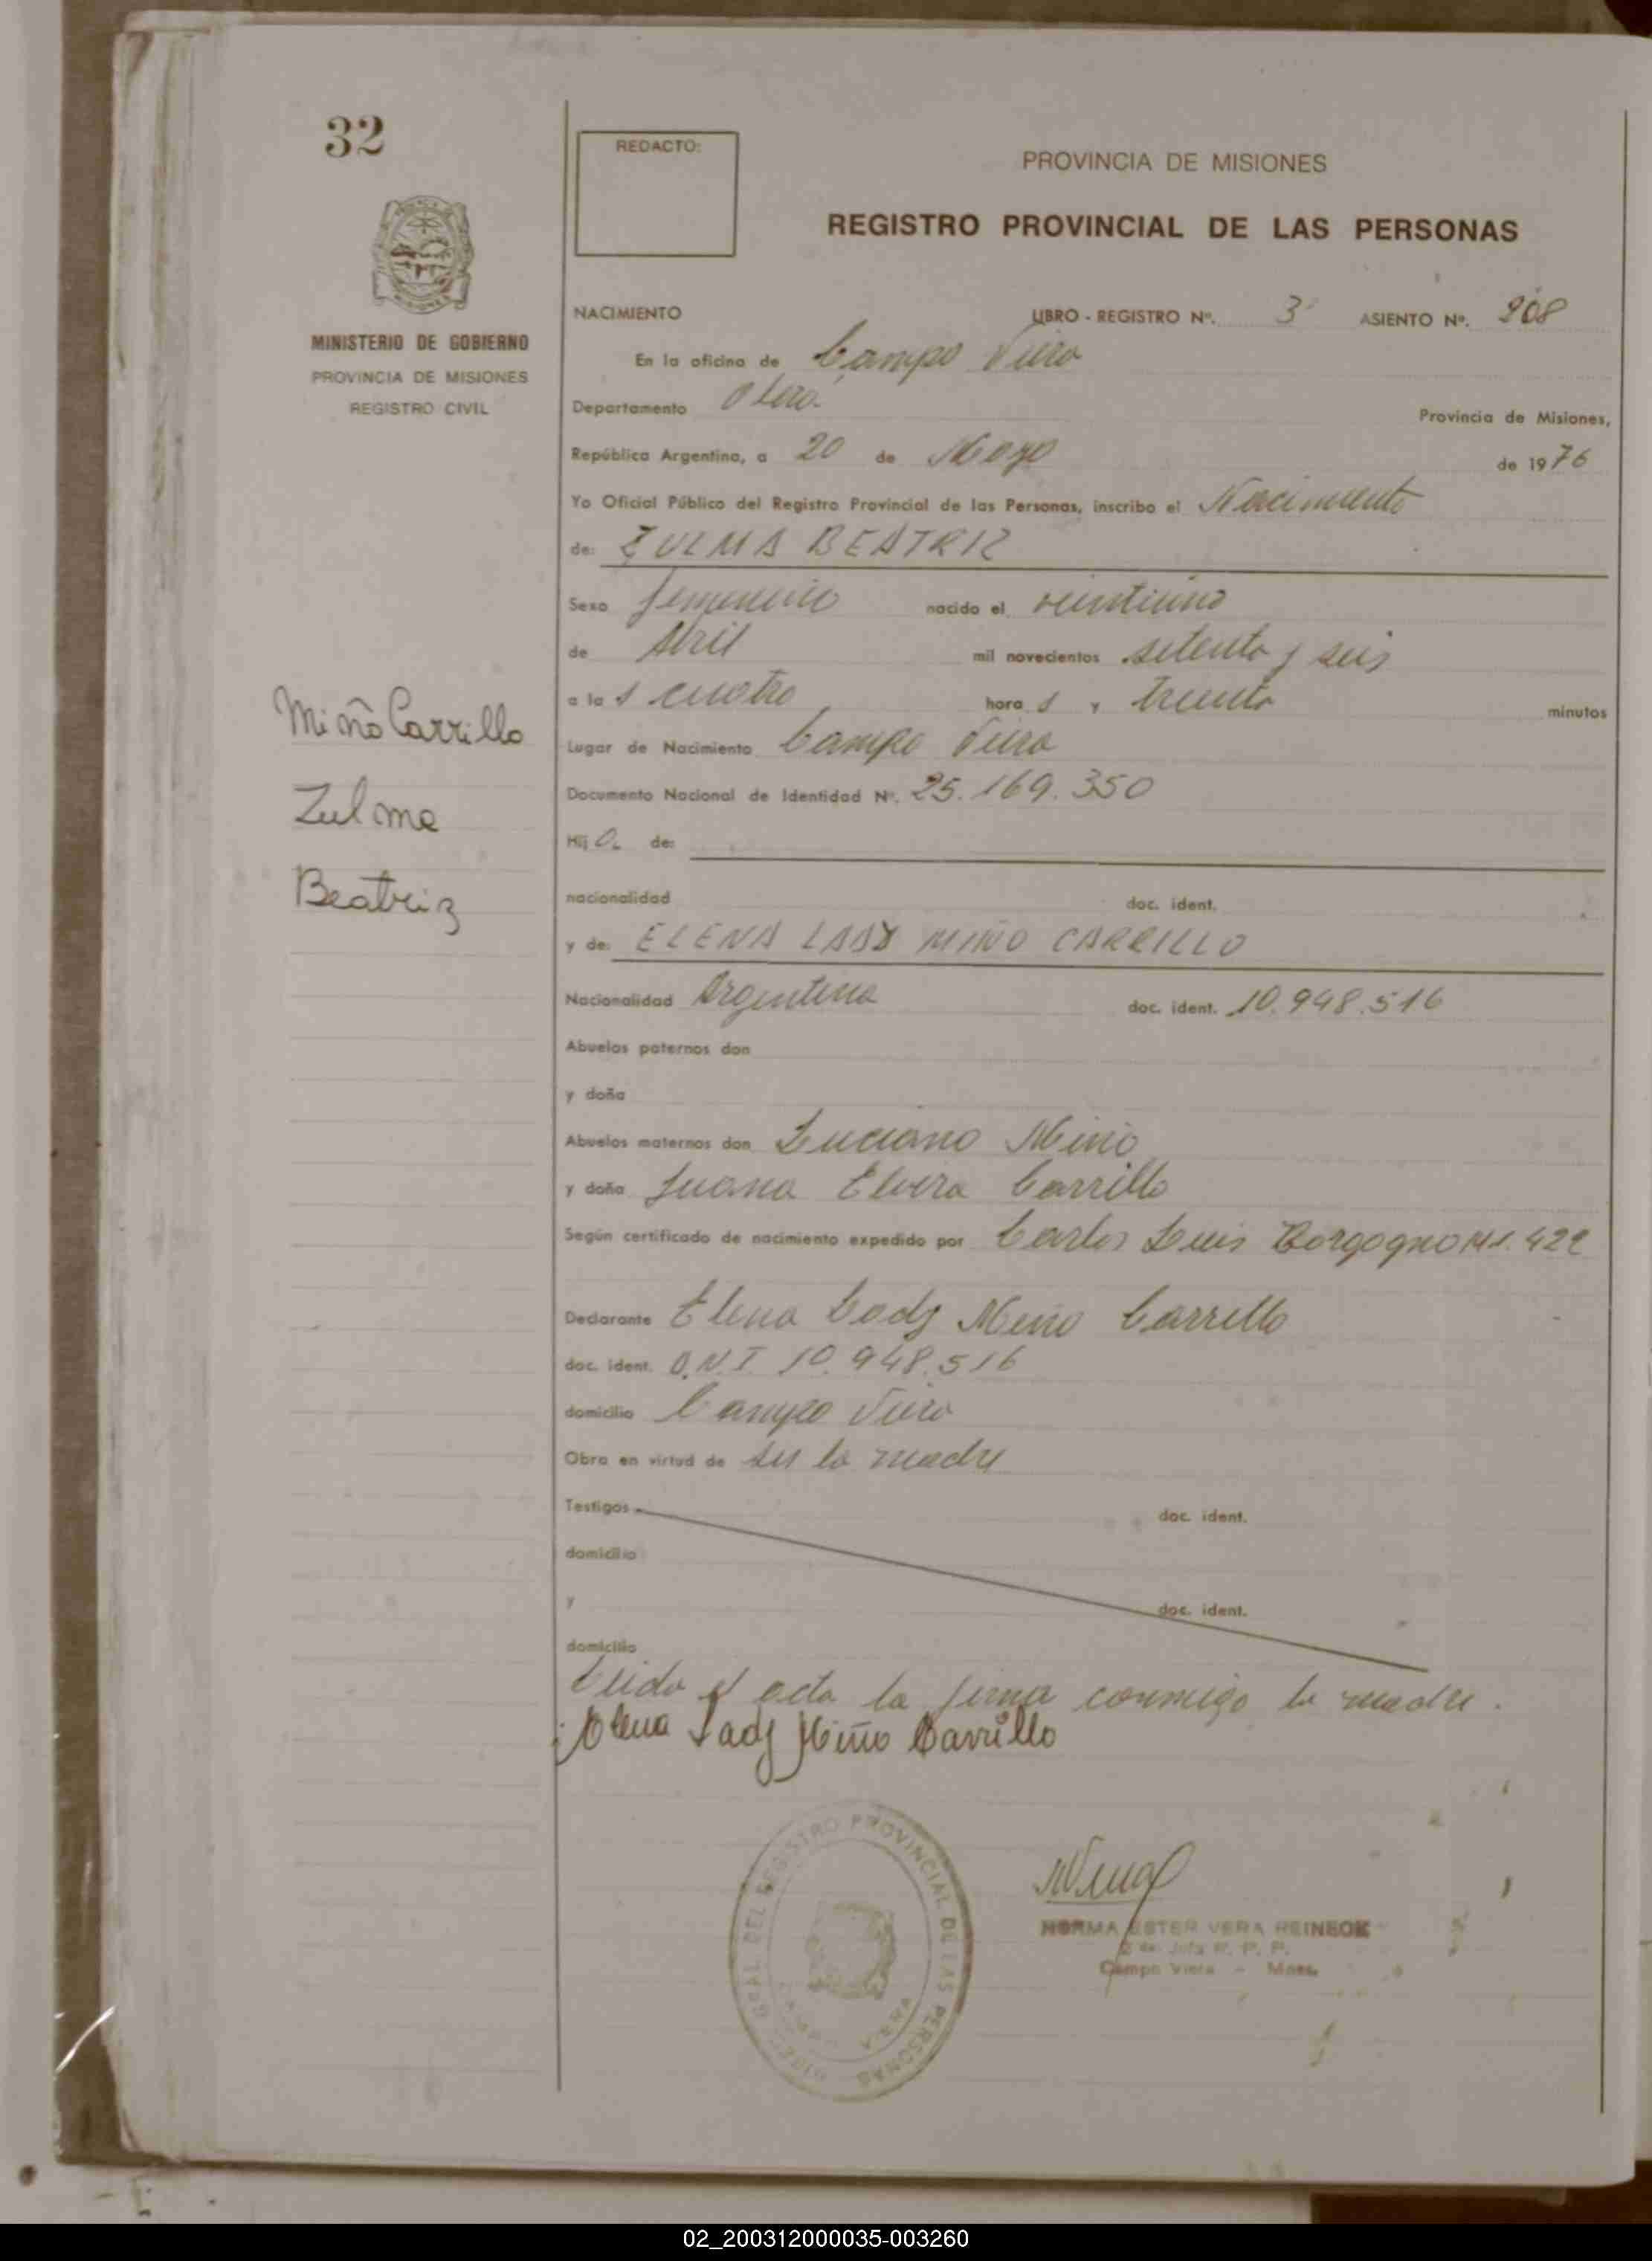 32
REDACTO:
PROVINCIA DE MISIONES
REGISTRO PROVINCIAL DE LAS PERSONAS
MINISTERIO DE GOBIERNO
PROVINCIA DE MISIONES
REGISTRO CIVIL
NACIMIENTO LIBRO - REGISTRO Nº. 3 ASIENTO Nº. 208
En la oficina de Campo Viera
Departamento Obera. Provincia de Misiones,
República Argentina, a 20 de Mayo de 1976
Yo Oficial Público del Registro Provincial de las Personas, inscribo el Nacimiento
de: ZULMA BEATRIZ
Sexo femenino nacido el veintiuno
de Abril mil novecientos setenta y seis
a la s cuatro hora s y treinta minutos
Lugar de Nacimiento Campo Viera
Documento Nacional de Identidad Nº. 25.169.350
Hij a de:
nacionalidad doc. ident.
y de: ELENA LADY MIÑO CARRILLO
Nacionalidad Argentina doc. ident. 10.948.516
Abuelos paternos don
y doña
Abuelos maternos don Luciano Miño
y doña Juana Elvira Carrillo
Según certificado de nacimiento expedido por Carlos Luis Borgogno 422
Declarante Elena Lady Miño Carrillo
doc. ident. D.N.I. 10.948.516
domicilio Campo Viera
Obra en virtud de ser la madre
Testigos doc. ident.
domicilio
y doc. ident.
domicilio
Leida el acta la firma conmigo la madre.
Elena Lady Miño Carrillo
Miño Carrillo
Zulma
Beatriz
REGISTRO PROVINCIAL DE LAS PERSONAS
VIERA
NORMA ESTER VERA REINECK
Jefa R. P. P.
Campo Viera - Mnes.
02_200312000035-003260